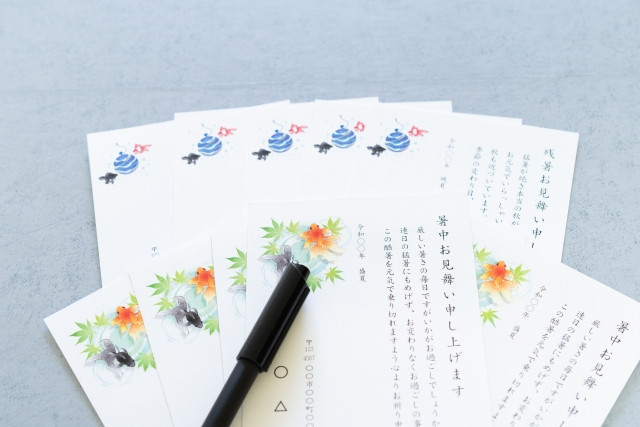 残暑お見舞い申し
猛暑が続き本当の秋が
お元気でいらっしゃい
秋も近づいています。
季節の変わり目
令和〇〇年
暑中お見舞い申し上げます
厳しい暑さの毎日ですがいかがお過ごしでしょうか
連日の猛暑にもめげず、お変わりなくお過ごしの事
この酷暑を元気で乗り切れますよう心よりお祈り申
令和〇〇年 盛夏
〒
123
4567
〇〇市〇〇町〇
〇 △
暑中お見舞い申し
厳しい暑さの毎日ですがいかが
連日の猛暑にもめげず、お変わ
この酷暑を元気で乗り切れます
令和〇〇年 盛夏